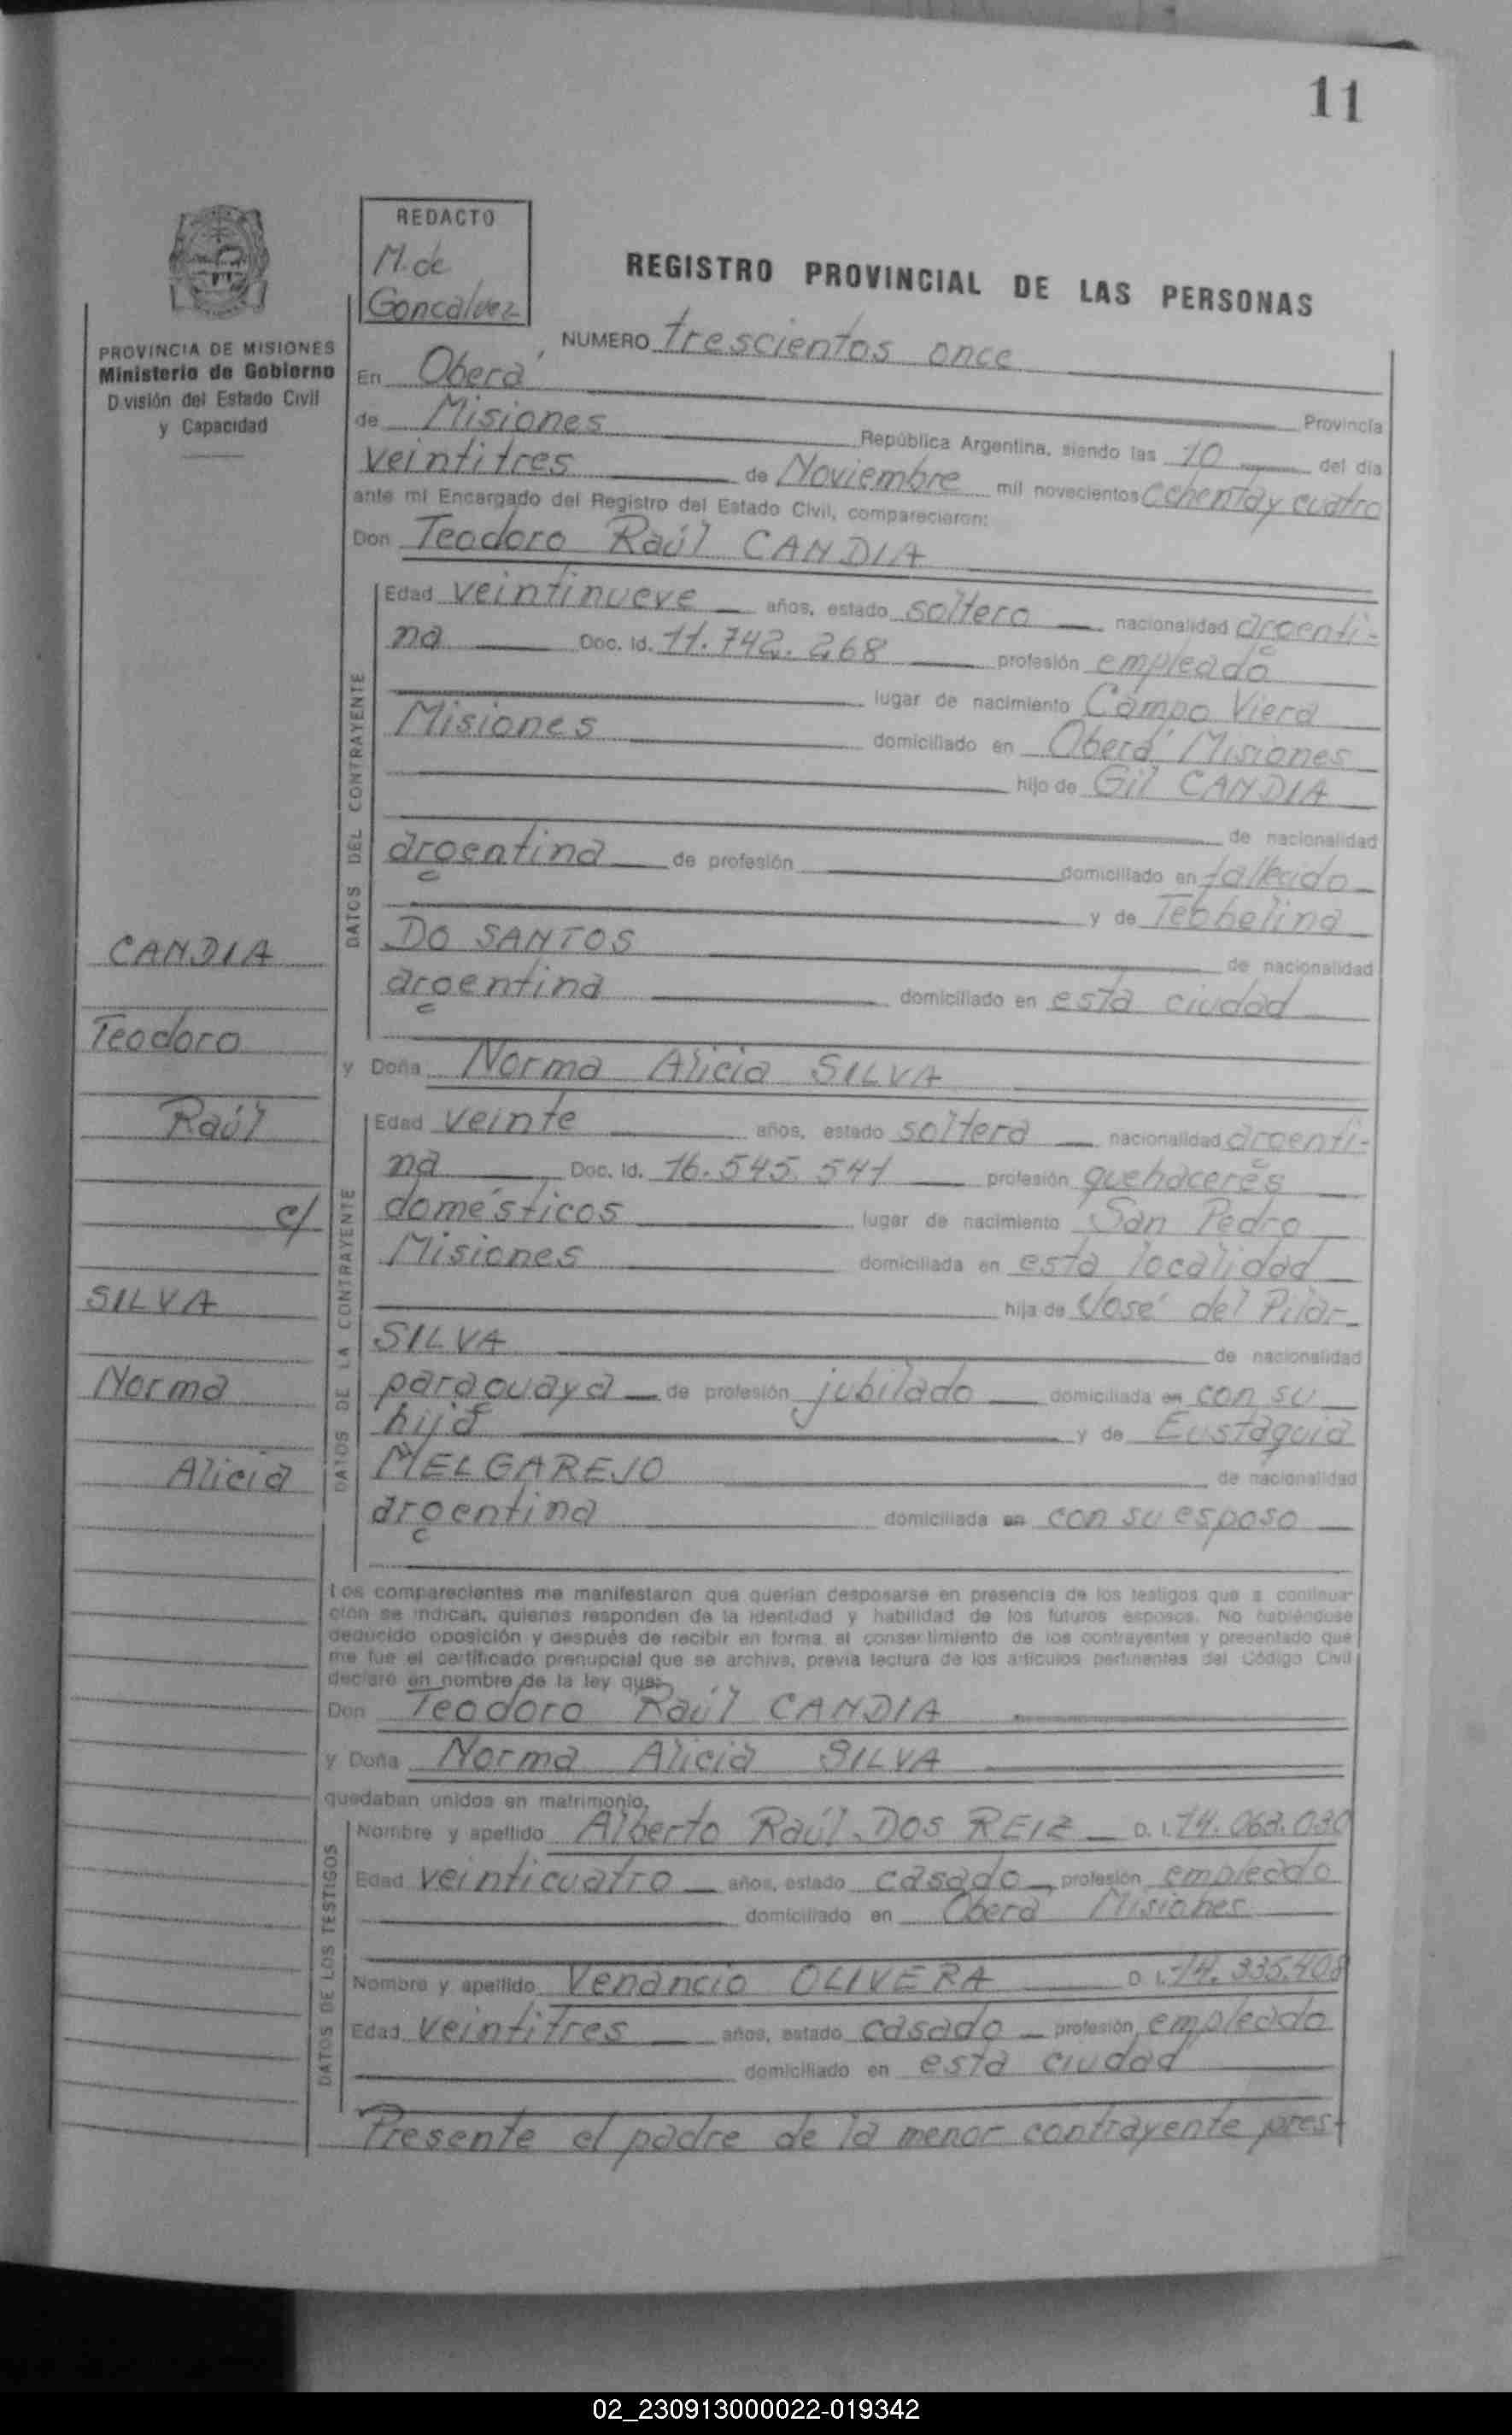 11
REDACTO
M. de
Goncalvez
REGISTRO PROVINCIAL DE LAS PERSONAS
PROVINCIA DE MISIONES
Ministerio de Gobierno
División del Estado Civil
y Capacidad
NUMERO trescientos once
En Oberá Provincia
de Misiones República Argentina, siendo las 10 del día
veintitres de Noviembre mil novecientos ochenta y cuatro
ante mí Encargado del Registro del Estado Civil, comparecieron:
Don Teodoro Raúl CANDIA
DATOS DEL CONTRAYENTE
Edad veintinueve años, estado soltero nacionalidad argenti-
na Doc. Id. 11.742.268 profesión empleado
lugar de nacimiento Campo Viera
Misiones domiciliado en Oberá Misiones
hijo de Gil CANDIA
de nacionalidad
argentina de profesión domiciliado en fallecido
y de
DO SANTOS de nacionalidad
argentina domiciliado en esta ciudad
y Doña Norma Alicia SILVA
DATOS DE LA CONTRAYENTE
Edad veinte años, estado soltera nacionalidad argenti-
na Doc. Id. 16.545.541 profesión quehaceres
domésticos lugar de nacimiento San Pedro
Misiones domiciliada en esta localidad
hija de José del Pilar
SILVA de nacionalidad
paraguaya de profesión jubilado domiciliada en con su
hija y de Eustaquia
MELGAREJO de nacionalidad
argentina domiciliada en con su esposo
CANDIA
Teodoro
Raúl
c/
SILVA
Norma
Alicia
Los comparecientes me manifestaron que querían desposarse en presencia de los testigos que a continua-
ción se indican, quienes responden de la identidad y habilidad de los futuros esposos. No habiéndose
deducido oposición y después de recibir en forma el consentimiento de los contrayentes y presentado que
me fue el certificado prenupcial que se archiva, previa lectura de los artículos pertinentes del Código Civil
declaro en nombre de la ley que:
Don Teodoro Raúl CANDIA
y Doña Norma Alicia SILVA
quedaban unidos en matrimonio,
DATOS DE LOS TESTIGOS
Nombre y apellido Alberto Raúl DOS REIZ D. I. 14.063.030
Edad veinticuatro años, estado casado profesión empleado
domiciliado en Oberá Misiones
Nombre y apellido Venancio OLIVERA D. I. 14.335.408
Edad veintitres años, estado casado profesión empleado
domiciliado en esta ciudad
Presente el padre de la menor contrayente prest
02_230913000022-019342